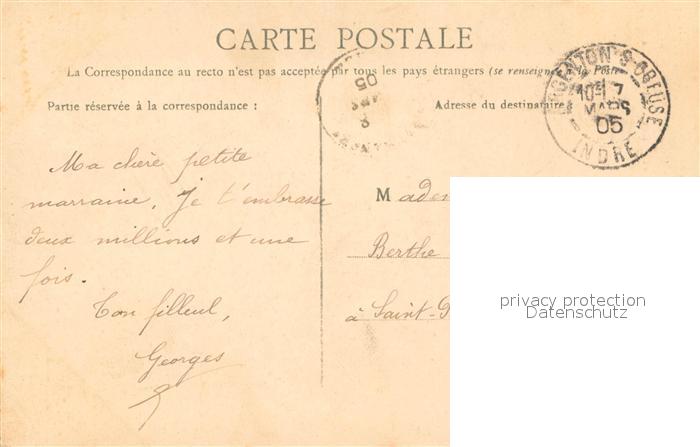 CARTE POSTALE
La Correspondance au recto n'est pas acceptée par tous les pays étrangers (se renseigner à la Poste
Partie réservée à la correspondance :
Adresse du destinataire
ARGENTON S CREUSE
7
MARS
05
INDRE
05
8
Ma chère petite
marraine, Je t'embrasse
deux millions et une
fois.
Ton filleul,
Georges
Madem
Berthe
à Saint-
privacy protection
Datenschutz